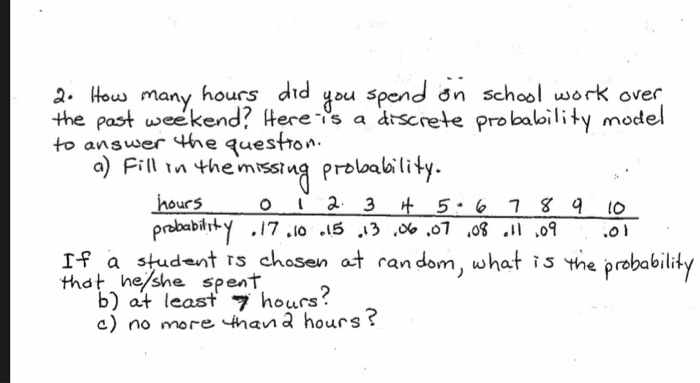 2. How many hours did you spend on school work over
the past weekend? Here is a discrete probability model
to answer the question.
a) Fill in the missing probability.
hours 0 1 2 3 4 5 6 7 8 9 10
probability .17 .10 .15 .13 .06 .07 .08 .11 .09 .01
If a student is chosen at random, what is the probability
that he/she spent
b) at least 7 hours?
c) no more than 2 hours?